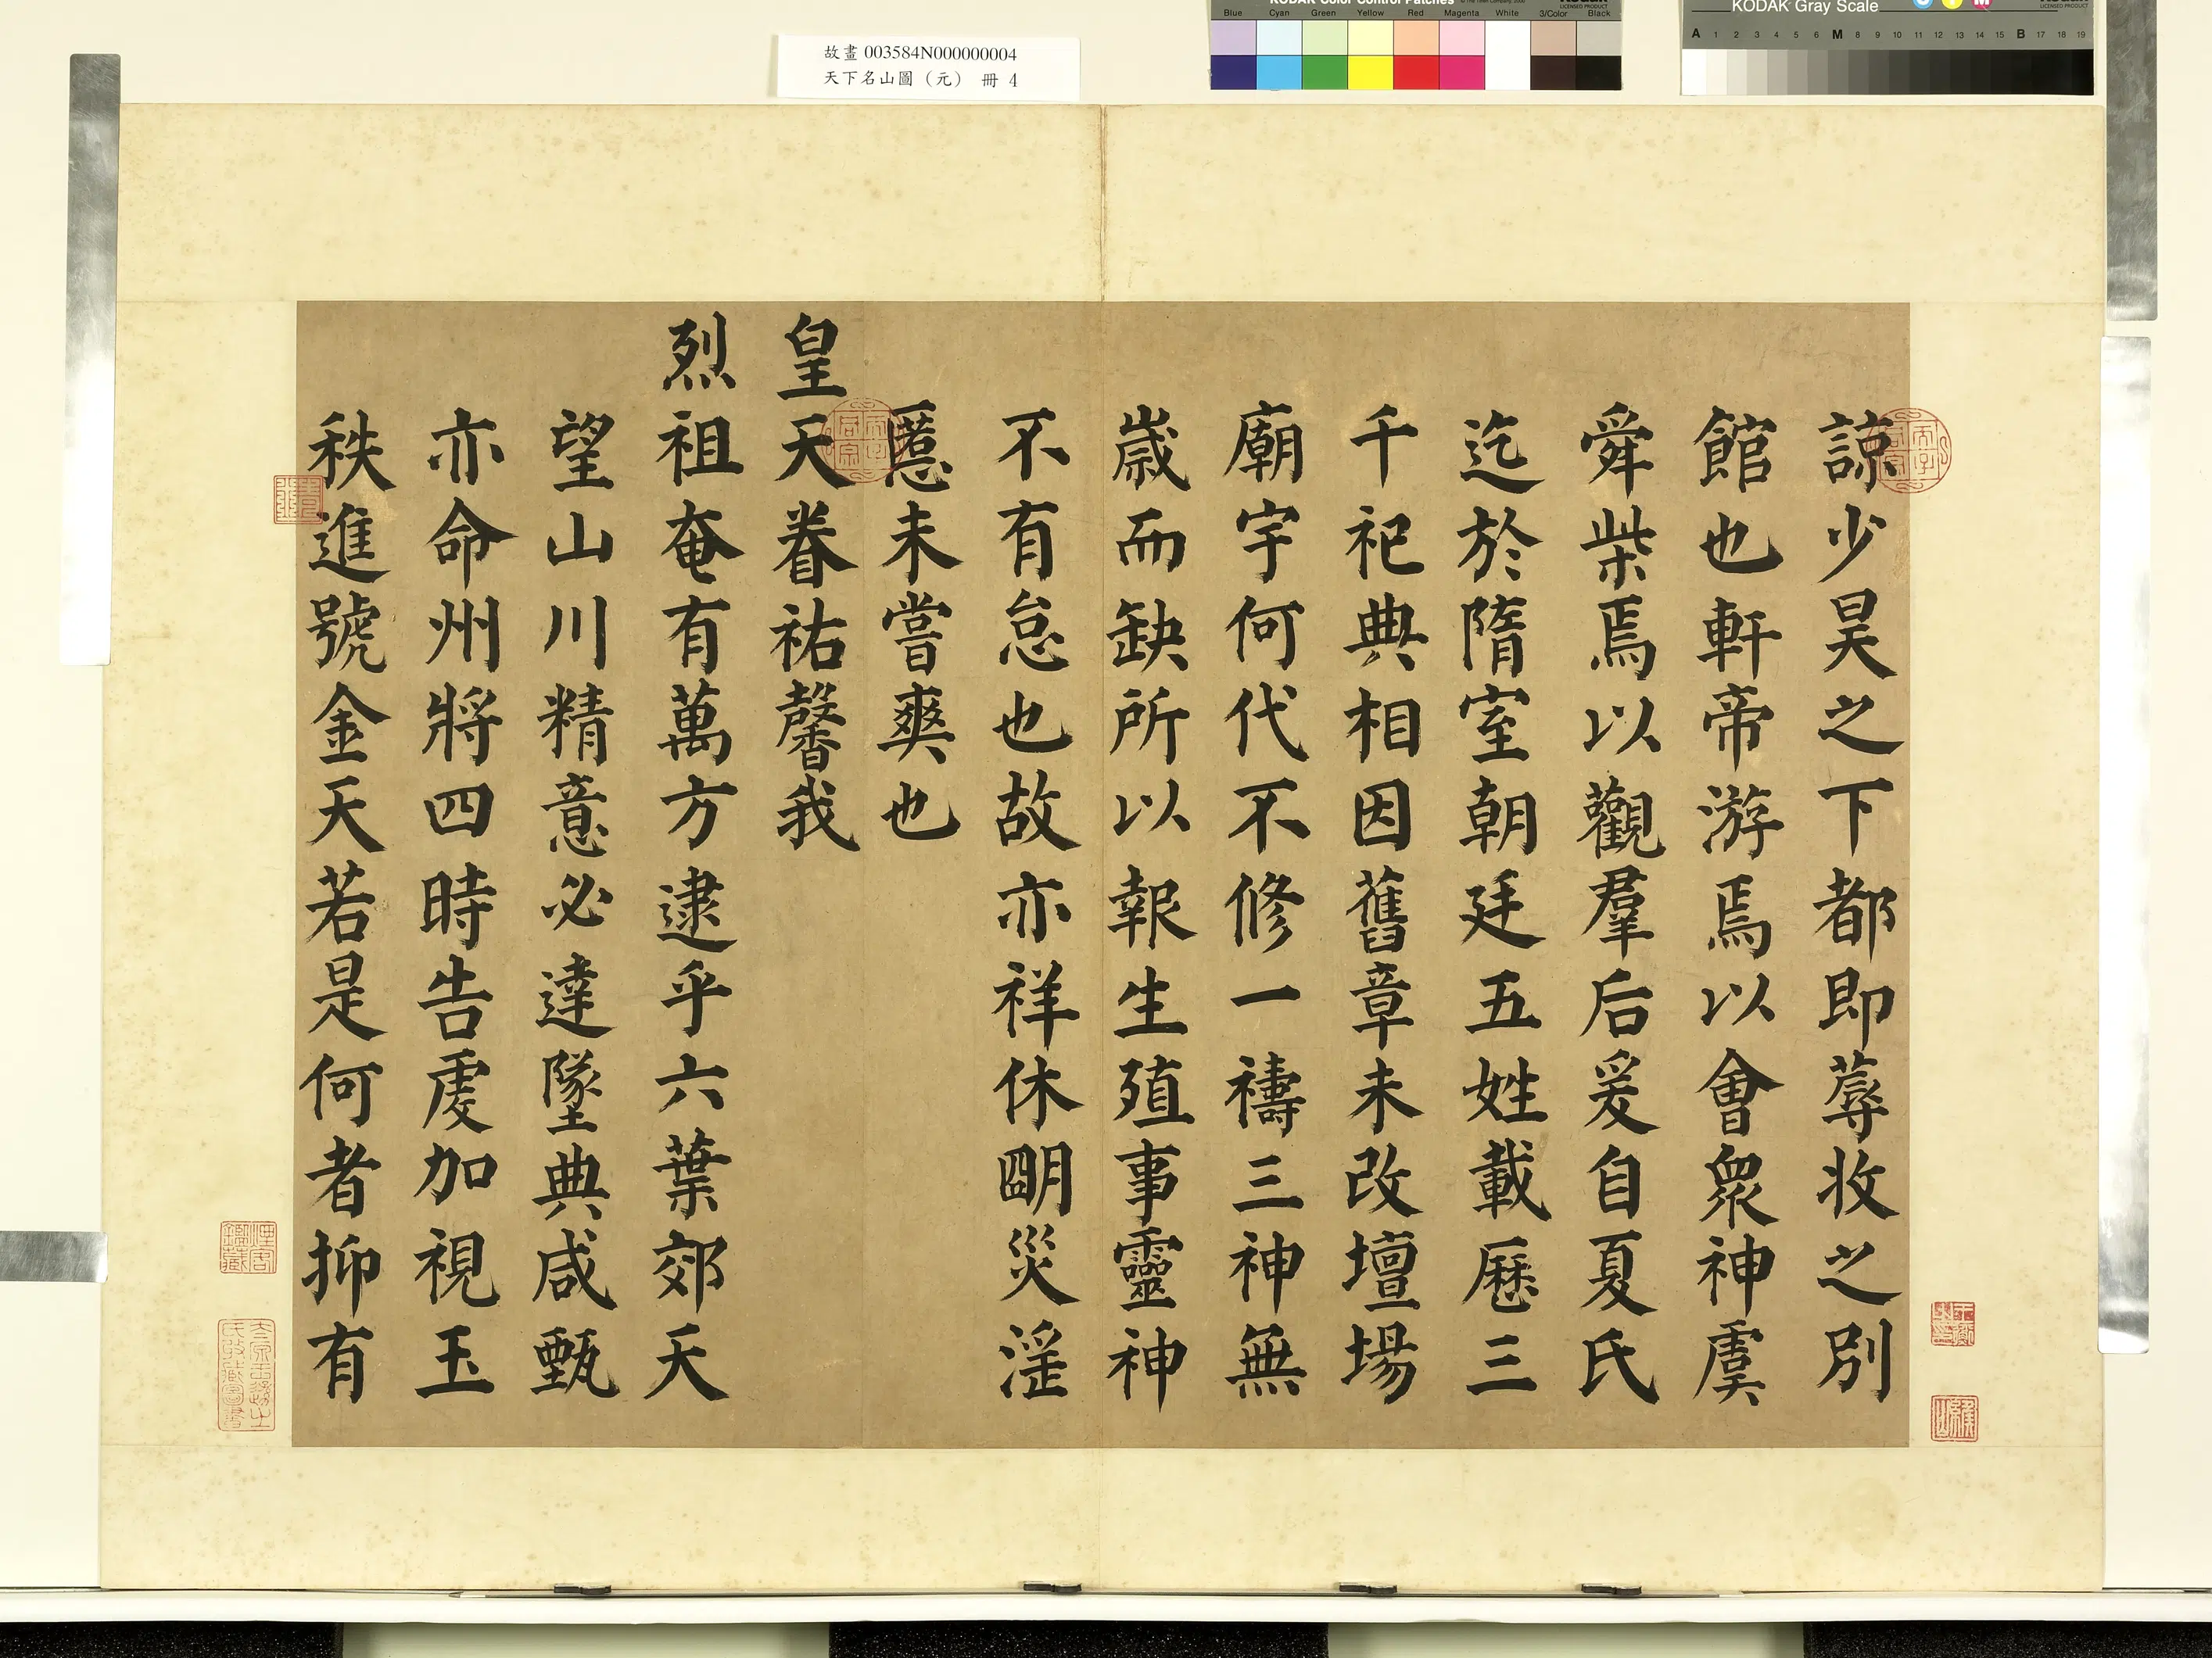 故畫 003584N000000004
天下名山圖（元） 冊 4
KODAK Color Control Patches
Blue Cyan Green Yellow Red Magenta White 3/Color Black
KODAK Gray Scale
A 1 2 3 4 5 6 M 8 9 10 11 12 13 14 15 B 17 18 19
諒少昊之下都即蓐收之別
館也軒帝游焉以會衆神虞
舜柴焉以觀羣后爰自夏氏
迄於隋室朝廷五姓載歷三
千祀典相因舊章未改壇場
廟宇何代不修一禱三神無
歲而缺所以報生殖事靈神
不有怠也故亦祥休明災淫
慝未嘗爽也
皇天眷祐馨我
烈祖奄有萬方逮乎六葉郊天
望山川精意必達墜典咸甄
亦命州將四時告虔加視王
秩進號金天若是何者抑有